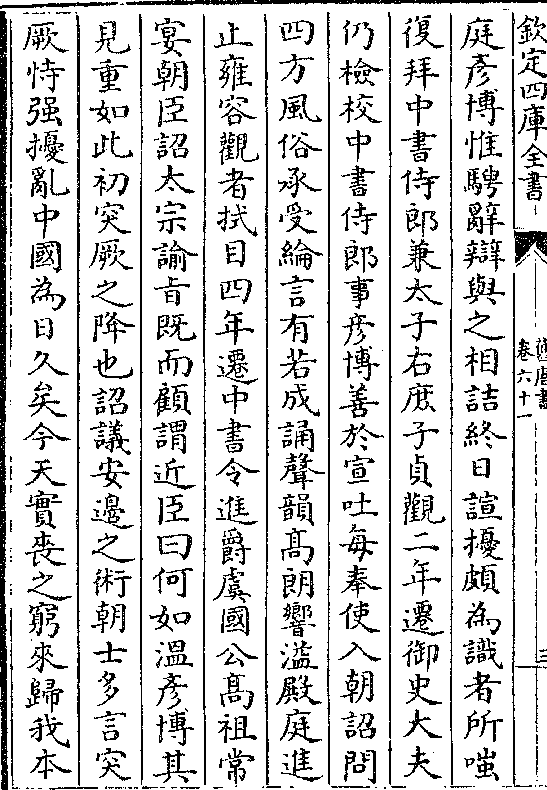 欽定四庫全書
舊唐書
卷六十一
三
庭彦博惟騁辭辯與之相詰終日諠擾頗為識者所嗤
復拜中書侍郎兼太子右庶子貞觀二年遷御史大夫
仍檢校中書侍郎事彦博善於宣吐每奉使入朝詔問
四方風俗承受綸言有若成誦聲韻髙朗響溢殿庭進
止雍容觀者拭目四年遷中書令進爵虞國公髙祖常
宴朝臣詔太宗諭㫖既而顧謂近臣曰何如溫彦博其
見重如此初突厥之降也詔議安邊之術朝士多言突
厥恃强擾亂中國為日久矣今天實喪之窮來歸我本